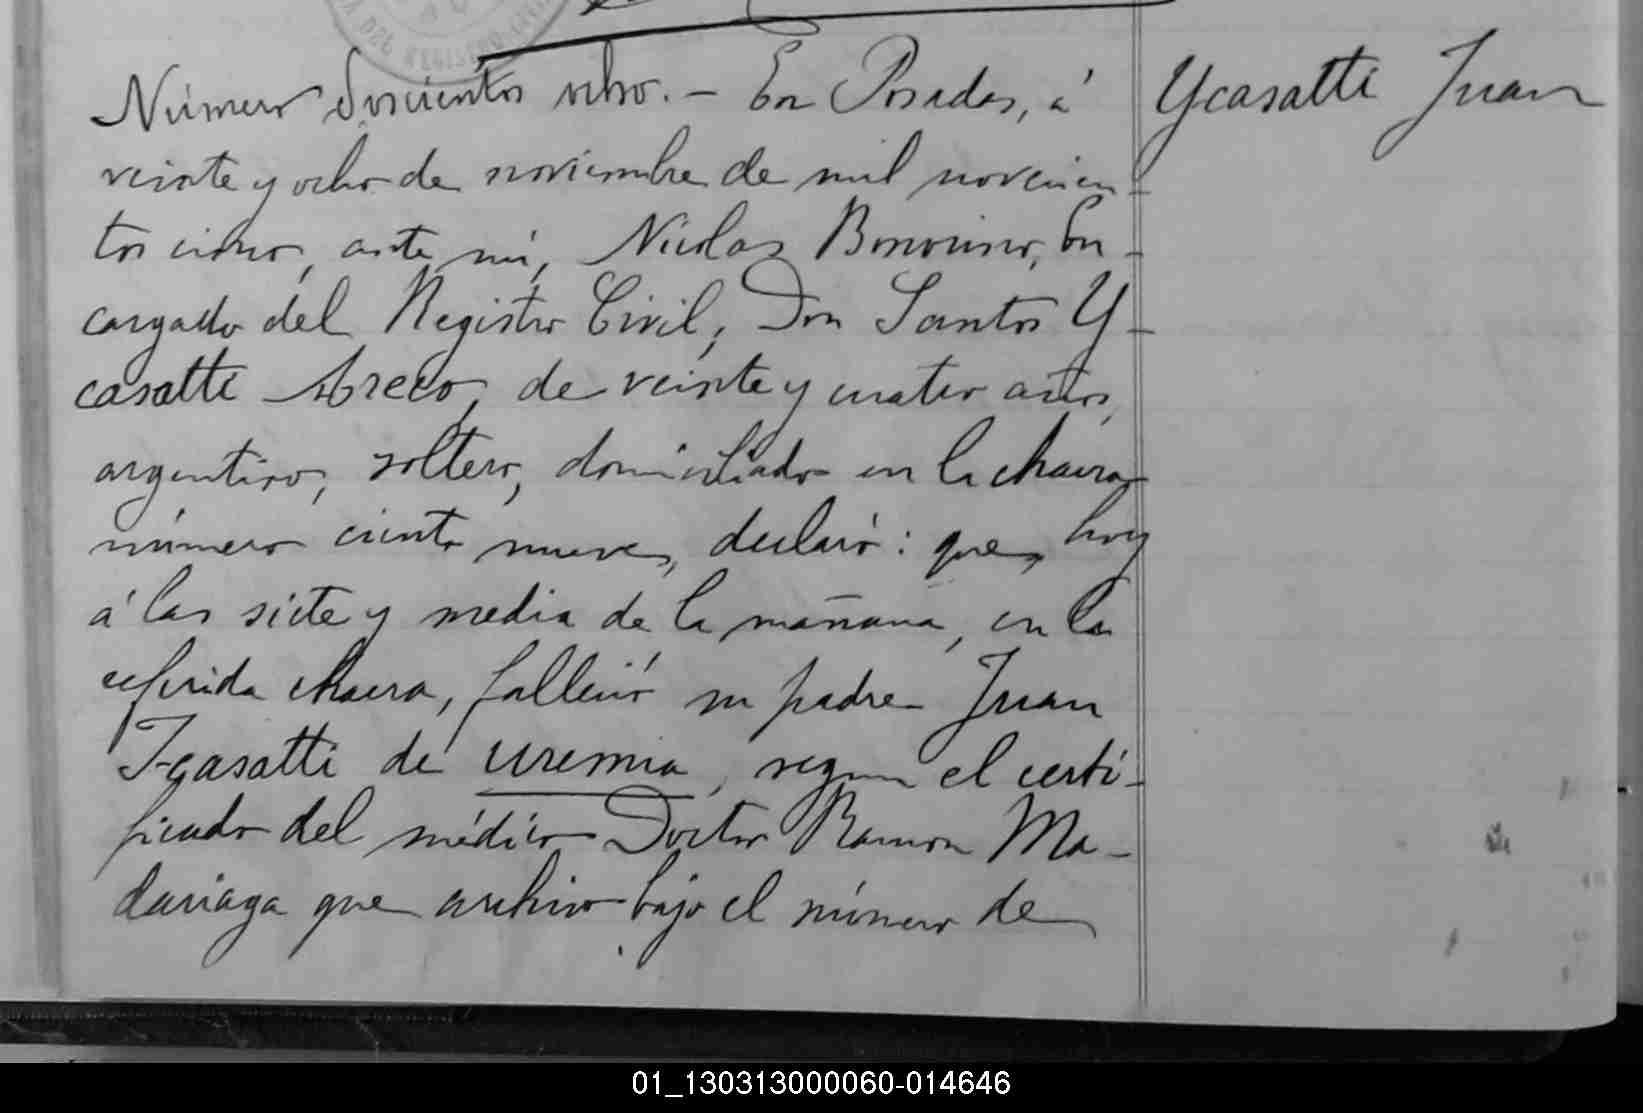 DEL REGISTRO
Número doscientos ocho. – En Posadas, á
Ycasatti Juan
veinte y ocho de noviembre de mil novecien-
tos cinco, ante mí, Nicolas Bonorino, En-
cargado del Registro Civil, Don Santos Y-
casatti Areco, de veinte y cuatro años,
argentino, soltero, domiciliado en la chacra
número ciento nueve, declaró: que, hoy
á las siete y media de la mañana, en la
referida chacra, falleció su padre Juan
Ycasatti de uremia, segun el certi-
ficado del médico Doctor Ramon Ma-
dariaga que archivo bajo el número de
01_130313000060-014646